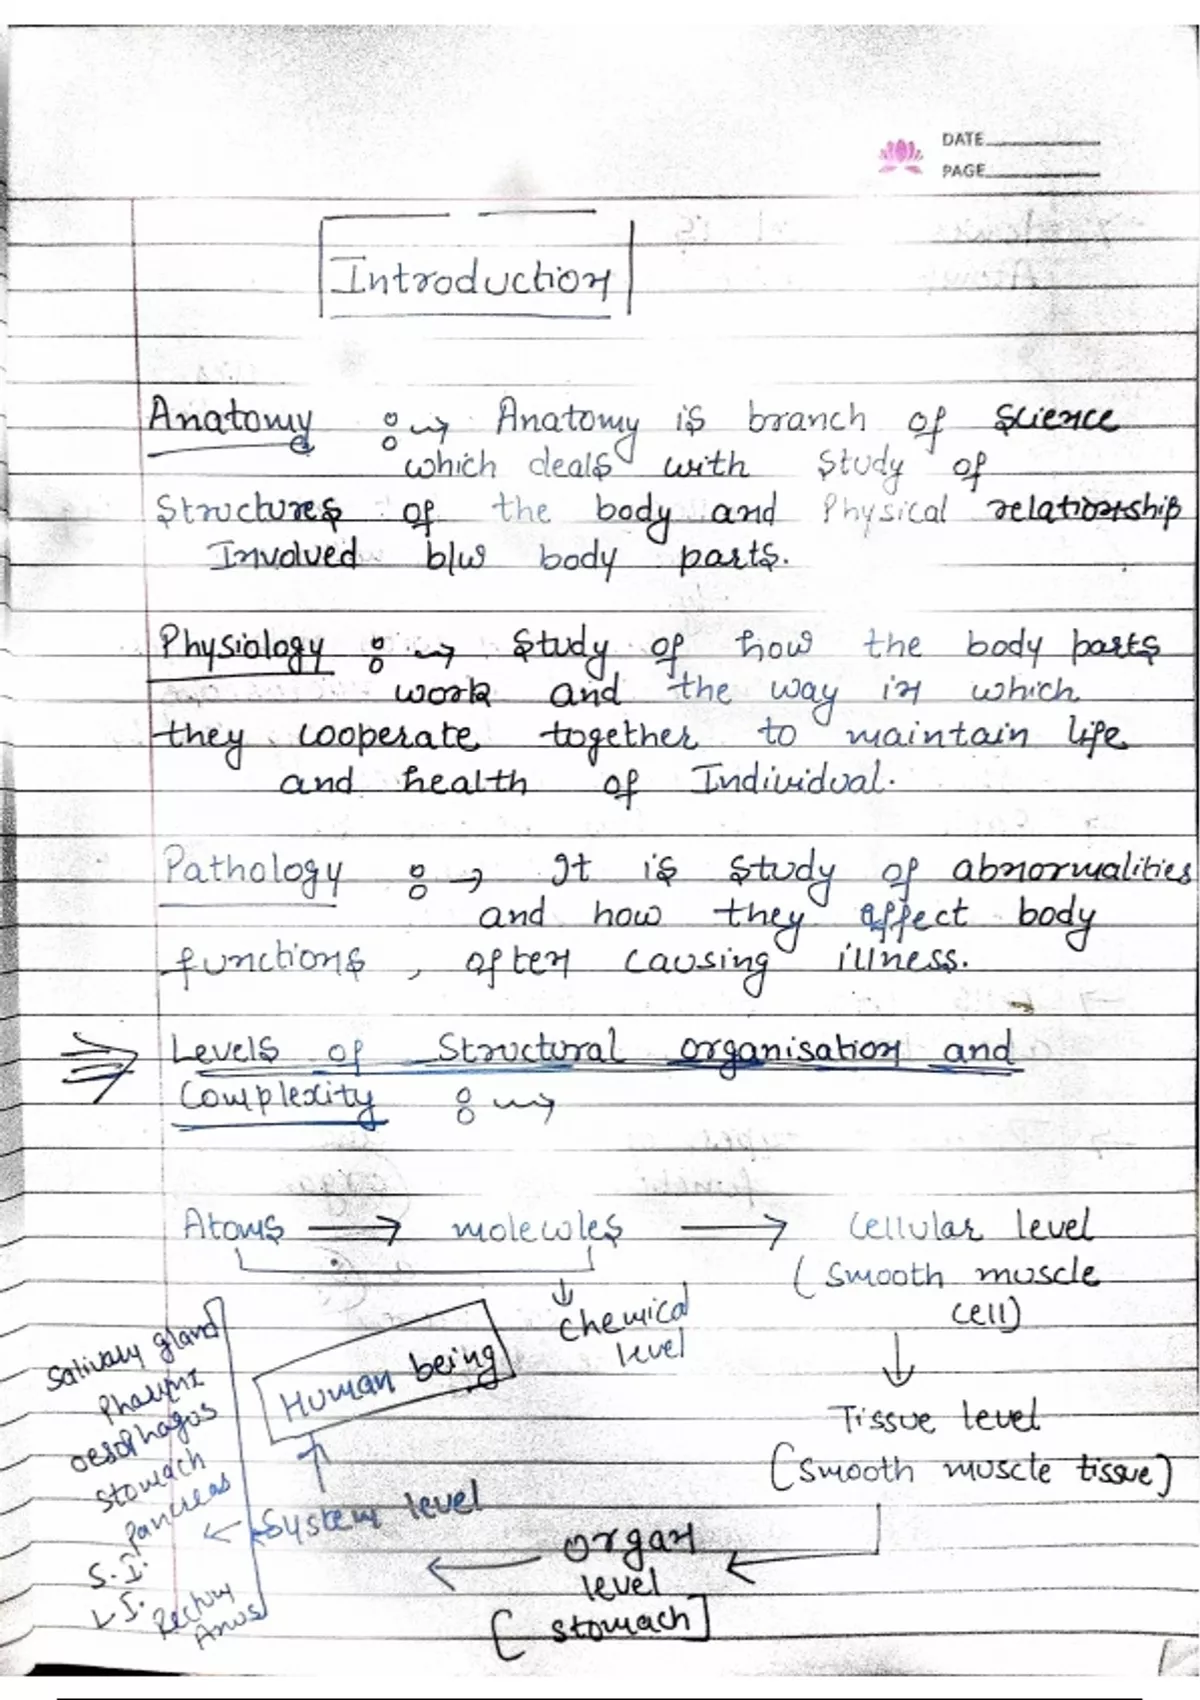 DATE
PAGE
Introduction
Anatomy :⇝ Anatomy is branch of science
which deals with study of
structures of the body and Physical relationship
Involved b/w body parts.
Physiology :⇝ Study of how the body parts
work and the way in which
they cooperate together to maintain life
and health of Individual.
Pathology :→ It is study of abnormalities
and how they affect body
functions, often causing illness.
⇒ Levels of Structural organisation and
Complexity :⇝
Atoms ⟹ molecules ⟹ Cellular level
(Smooth muscle
cell)
↓
Chemical
level
↓
Tissue level
(Smooth muscle tissue)
organ
level
[stomach]
← System level
↑
Human being
Salivary gland
Pharynx
oesophagus
stomach
Pancreas
S.I.
L.I.
Rectum
Anus